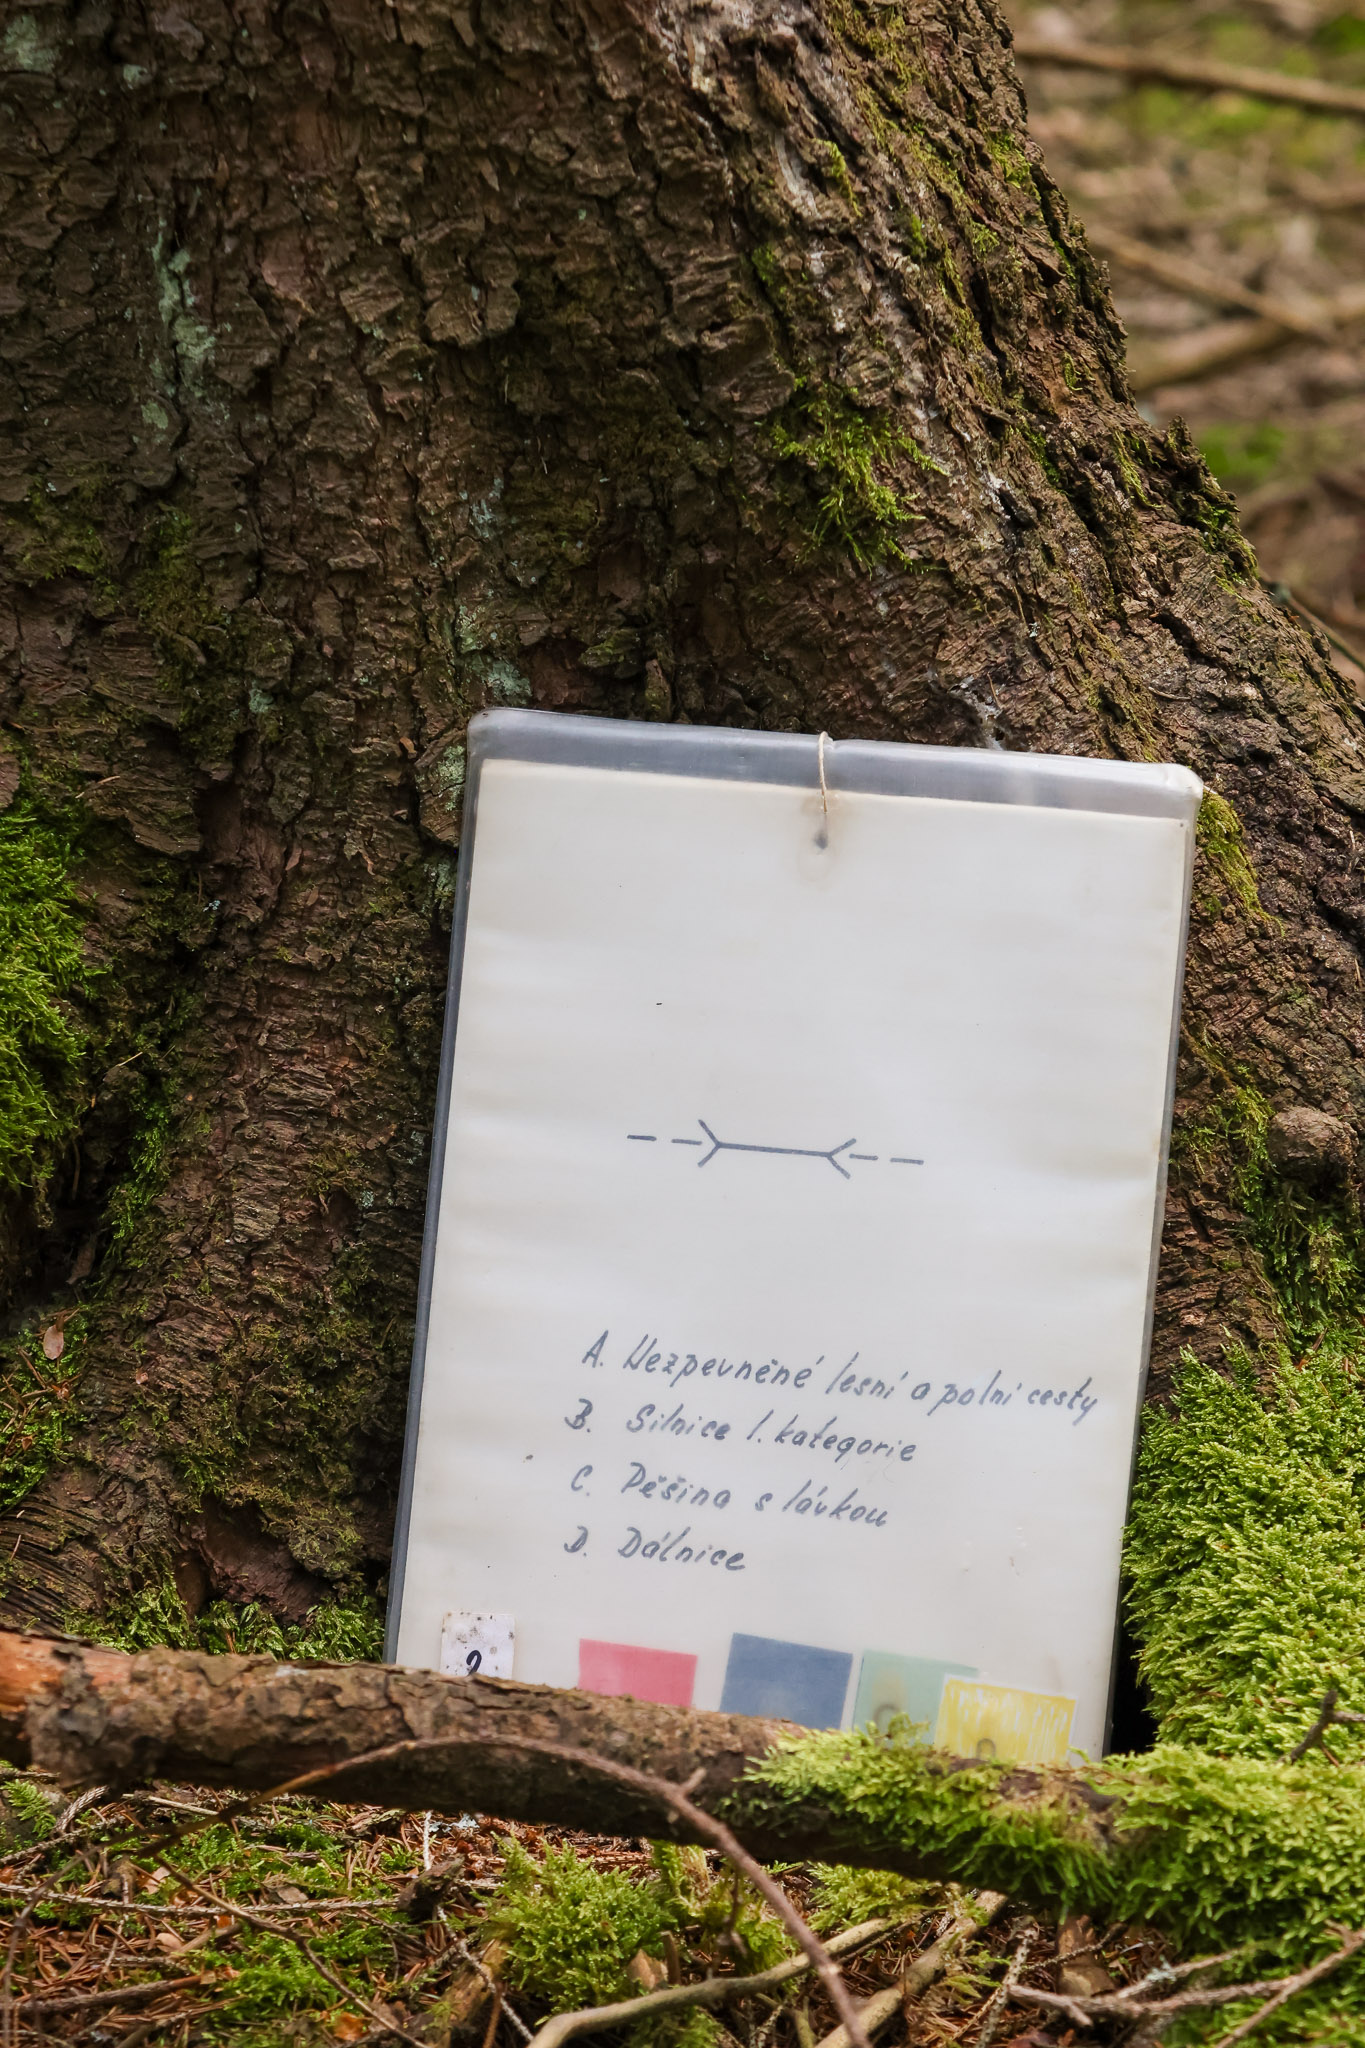 A. Nezpevněné lesní a polní cesty
B. Silnice I. kategorie
C. Pěšina s lávkou
D. Dálnice
2